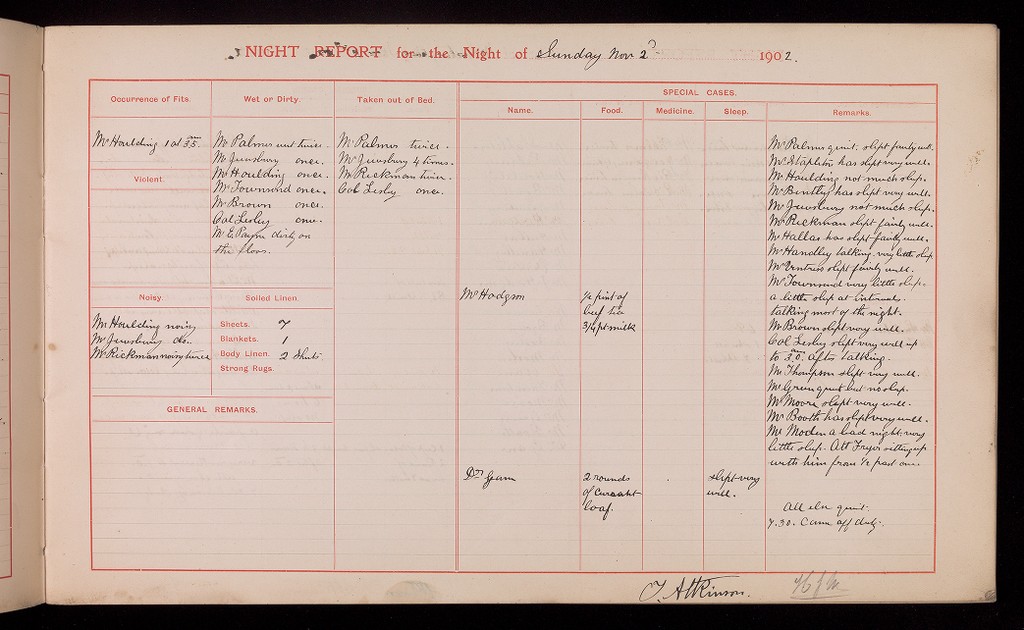 NIGHT REPORT for the Night of Sunday Nov 2d 1902.
Occurrence of Fits.
Mr Houlding 1 at 3.5. am
Violent.
Noisy.
Mr Houlding noisy
Mr Jewsbury do.
Mr Rickman noisy twice
Wet or Dirty.
Mr Palmer wet twice.
Mr Jewsbury once.
Mr Houlding once.
Mr Townsend once.
Mr Brown once.
Col Lesley once.
Mr E. Payne dirty on
the floor.
Soiled Linen.
Sheets. 7
Blankets. 1
Body Linen. 2 Shirts
Strong Rugs.
GENERAL REMARKS.
Taken out of Bed.
Mr Palmer twice.
Mr Jewsbury 4 times.
Mr Rickman twice.
Col Lesley once.
SPECIAL CASES.
Name. Food. Medicine. Sleep. Remarks.
Mr Hodgson
½ pint of
beef tea
3/4 pt milk
Dr Gunn
2 rounds
of Currant
loaf.
slept very
well.
Mr Palmer quiet, slept fairly well.
Mr Stapleton has slept very well.
Mr Houlding not much sleep.
Mr Bentley has slept very well.
Mr Jewsbury not much sleep.
Mr Rickman slept fairly well.
Mr Hallas has slept fairly well.
Mr Handley talking very little sleep
Mr Ventress slept fairly well.
Mr Townsend very little sleep.
a little sleep at intervals.
talking most of the night.
Mr Brown slept very well.
Col Lesley slept very well up
to 3.0. am after talking.
Mr Thompson slept very well.
Mr Green quiet but no sleep.
Mr Moore slept very well.
Mr Booth has slept very well.
Mr Moden a bad night, very
little sleep. Att Fryer sitting up
with him from ½ past one.
All else quiet.
7.30. Came off duty.
T. Atkinson.